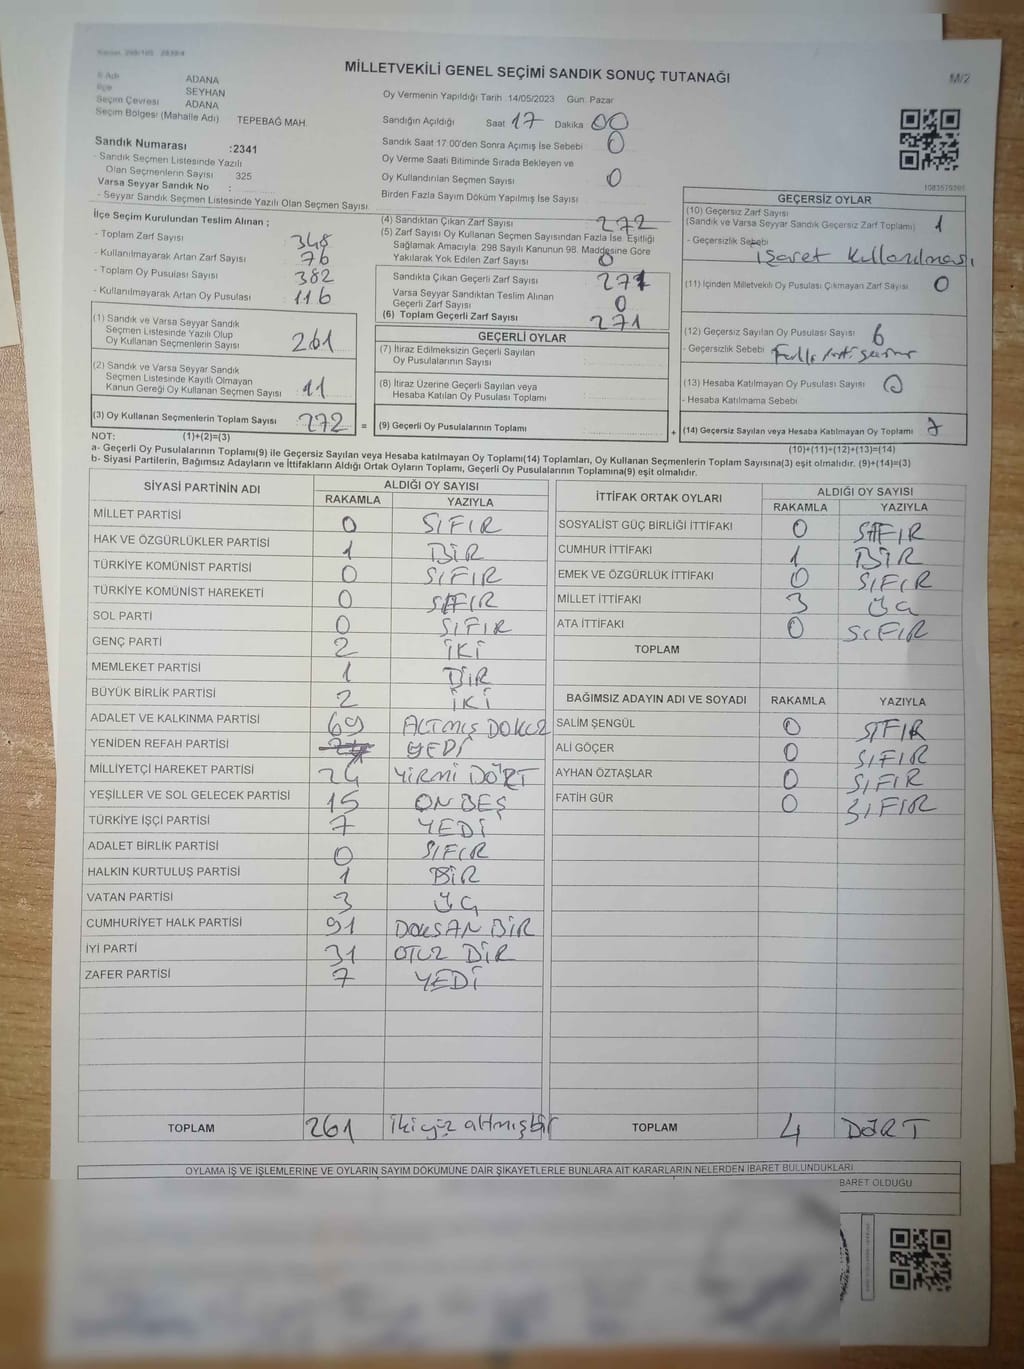 MİLLETVEKİLİ GENEL SEÇİMİ SANDIK SONUÇ TUTANAĞI
M/2
İl Adı ADANA
İlçe SEYHAN
Seçim Çevresi ADANA
Seçim Bölgesi (Mahalle Adı) TEPEBAĞ MAH.
Sandık Numarası :2341
- Sandık Seçmen Listesinde Yazılı
Olan Seçmenlerin Sayısı 325
Varsa Seyyar Sandık No :
- Seyyar Sandık Seçmen Listesinde Yazılı Olan Seçmen Sayısı
Oy Vermenin Yapıldığı Tarih 14/05/2023 Gün: Pazar
Sandığın Açıldığı Saat 17 Dakika 00
Sandık Saat 17:00'den Sonra Açımış İse Sebebi 0
Oy Verme Saati Bitiminde Sırada Bekleyen ve
Oy Kullandırılan Seçmen Sayısı 0
Birden Fazla Sayım Döküm Yapılmış İse Sayısı
İlçe Seçim Kurulundan Teslim Alınan ;
- Toplam Zarf Sayısı 348
- Kullanılmayarak Artan Zarf Sayısı 76
- Toplam Oy Pusulası Sayısı 382
- Kullanılmayarak Artan Oy Pusulası 116
(1) Sandık ve Varsa Seyyar Sandık
Seçmen Listesinde Yazılı Olup
Oy Kullanan Seçmenlerin Sayısı 261
(2) Sandık ve Varsa Seyyar Sandık
Seçmen Listesinde Kayıtlı Olmayan
Kanun Gereği Oy Kullanan Seçmen Sayısı 11
(3) Oy Kullanan Seçmenlerin Toplam Sayısı 272 =
(4) Sandıktan Çıkan Zarf Sayısı 272
(5) Zarf Sayısı Oy Kullanan Seçmen Sayısından Fazla İse, Eşitliği
Sağlamak Amacıyla; 298 Sayılı Kanunun 98. Maddesine Göre
Yakılarak Yok Edilen Zarf Sayısı 0
Sandıkta Çıkan Geçerli Zarf Sayısı 271
Varsa Seyyar Sandıktan Teslim Alınan
Geçerli Zarf Sayısı 0
(6) Toplam Geçerli Zarf Sayısı 271
GEÇERLİ OYLAR
(7) İtiraz Edilmeksizin Geçerli Sayılan
Oy Pusulalarının Sayısı
(8) İtiraz Üzerine Geçerli Sayılan veya
Hesaba Katılan Oy Pusulası Toplamı
(9) Geçerli Oy Pusulalarının Toplamı +
GEÇERSİZ OYLAR
(10) Geçersiz Zarf Sayısı
(Sandık ve Varsa Seyyar Sandık Geçersiz Zarf Toplamı) 1
- Geçersizlik Sebebi
işaret kullanılması
(11) İçinden Milletvekili Oy Pusulası Çıkmayan Zarf Sayısı 0
(12) Geçersiz Sayılan Oy Pusulası Sayısı 6
- Geçersizlik Sebebi
(13) Hesaba Katılmayan Oy Pusulası Sayısı 0
- Hesaba Katılmama Sebebi
(14) Geçersiz Sayılan veya Hesaba Katılmayan Oy Toplamı 7
NOT: (1)+(2)=(3) (10)+(11)+(12)+(13)=(14)
a- Geçerli Oy Pusulalarının Toplamı(9) ile Geçersiz Sayılan veya Hesaba katılmayan Oy Toplamı(14) Toplamları, Oy Kullanan Seçmenlerin Toplam Sayısına(3) eşit olmalıdır. (9)+(14)=(3)
b- Siyasi Partilerin, Bağımsız Adayların ve İttifakların Aldığı Ortak Oyların Toplamı, Geçerli Oy Pusulalarının Toplamına(9) eşit olmalıdır.
SİYASİ PARTİNİN ADI ALDIĞI OY SAYISI
RAKAMLA YAZIYLA
MİLLET PARTİSİ 0 SIFIR
HAK VE ÖZGÜRLÜKLER PARTİSİ 1 BİR
TÜRKİYE KOMÜNİST PARTİSİ 0 SIFIR
TÜRKİYE KOMÜNİST HAREKETİ 0 SIFIR
SOL PARTİ 0 SIFIR
GENÇ PARTİ 2 İKİ
MEMLEKET PARTİSİ 1 BİR
BÜYÜK BİRLİK PARTİSİ 2 İKİ
ADALET VE KALKINMA PARTİSİ 69 ALTMIŞ DOKUZ
YENİDEN REFAH PARTİSİ YEDİ
MİLLİYETÇİ HAREKET PARTİSİ 24 YİRMİ DÖRT
YEŞİLLER VE SOL GELECEK PARTİSİ 15 ON BEŞ
TÜRKİYE İŞÇİ PARTİSİ 7 YEDİ
ADALET BİRLİK PARTİSİ 0 SIFIR
HALKIN KURTULUŞ PARTİSİ 1 BİR
VATAN PARTİSİ 3 ÜÇ
CUMHURİYET HALK PARTİSİ 91 DOKSAN BİR
İYİ PARTİ 31 OTUZ BİR
ZAFER PARTİSİ 7 YEDİ
TOPLAM 261 ikiyüz altmışbir
İTTİFAK ORTAK OYLARI ALDIĞI OY SAYISI
RAKAMLA YAZIYLA
SOSYALİST GÜÇ BİRLİĞİ İTTİFAKI 0 SIFIR
CUMHUR İTTİFAKI 1 BİR
EMEK VE ÖZGÜRLÜK İTTİFAKI 0 SIFIR
MİLLET İTTİFAKI 3 ÜÇ
ATA İTTİFAKI 0 SIFIR
TOPLAM
BAĞIMSIZ ADAYIN ADI VE SOYADI RAKAMLA YAZIYLA
SALİM ŞENGÜL 0 SIFIR
ALİ GÖÇER 0 SIFIR
AYHAN ÖZTAŞLAR 0 SIFIR
FATİH GÜR 0 SIFIR
TOPLAM 4 DÖRT
OYLAMA İŞ VE İŞLEMLERİNE VE OYLARIN SAYIM DÖKÜMÜNE DAİR ŞİKAYETLERLE BUNLARA AİT KARARLARIN NELERDEN İBARET BULUNDUKLARI
BARET OLDUĞU